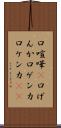 口喧嘩口げ
んか口ゲンカ
口ケンカ